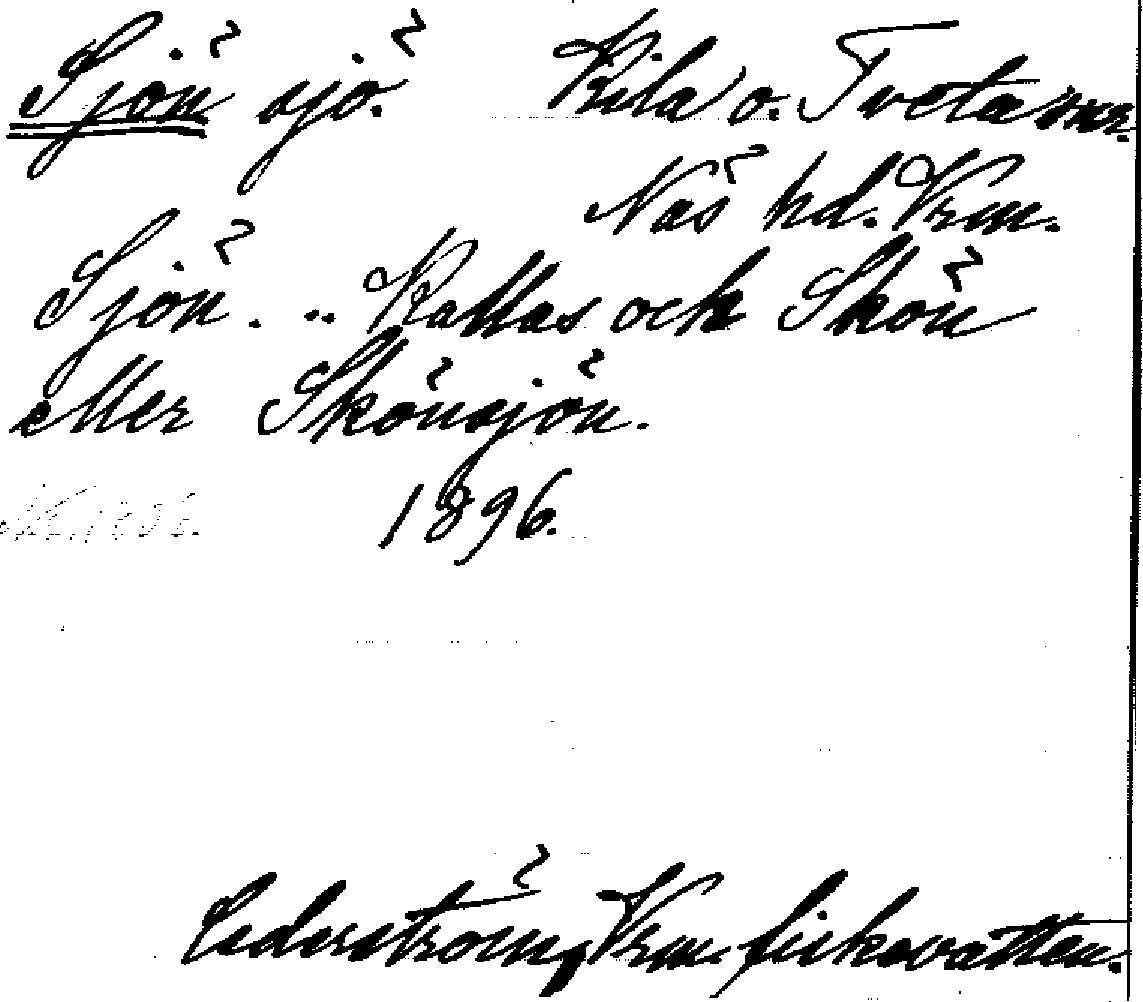 Sjön sjö. Kila o. Tveta snr.
Näs hd. Vrm.
Sjön. .. Kallas och Skön
eller Skönsjön.
1896.
Cederström, Vrm. fiskevatten.